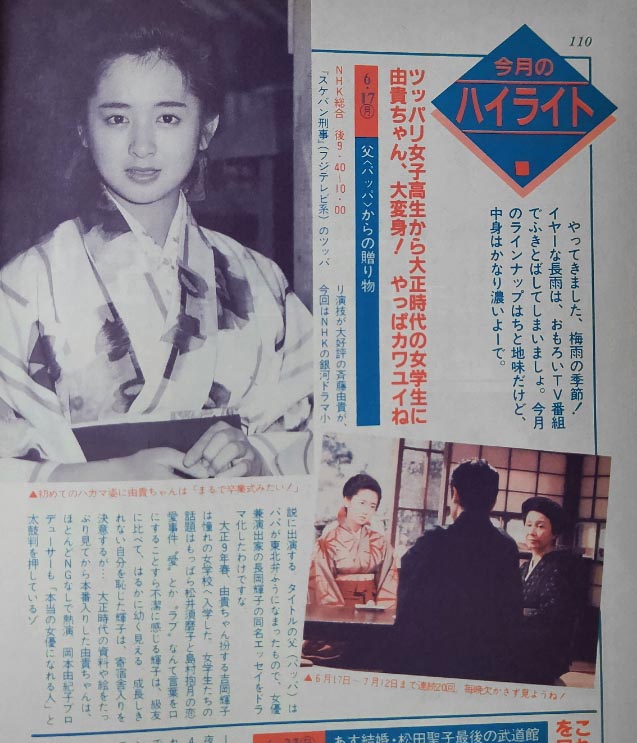 110
今月の
ハイライト
やってきました、梅雨の季節!
イヤーな長雨は、おもろいTV番組
でふきとばしてしまいましょ。今月
のラインナップはちと地味だけど、
中身はかなり濃いよーで。
ツッパリ女子高生から大正時代の女学生に
由貴ちゃん、大変身! やっぱカワユイね
6・17(月)
父〈パッパ〉からの贈り物
NHK総合 後9・40〜10・00
『スケバン刑事』(フジテレビ系)のツッパ
リ演技が大好評の斉藤由貴が、
今回はNHKの銀河ドラマ小
▲初めてのハカマ姿に由貴ちゃんは「まるで卒業式みたい!」
説に出演する。タイトルの父〈パッパ〉は
パパが東北弁ふうになまったもので、女優
兼演出家の長岡輝子の同名エッセイをドラ
マ化したわけですな
大正9年春、由貴ちゃん扮する吉岡輝子
は憧れの女学校へ入学した。女学生たちの
話題はもっぱら松井須磨子と島村抱月の恋
愛事件。“愛”とか“ラブ”なんて言葉を口
にすることすら不潔に感じる輝子は、級友
に比べて、はるかに幼く見える 成長しき
れない自分を恥じた輝子は、寄宿舎入りを
決意するが… 大正時代の資料や絵をたっ
ぷり見てから本番入りした由貴ちゃんは、
ほとんどNGなしで熱演 岡本由紀子プロ
デューサーも「本当の女優になれる人」と
太鼓判を押しているゾ
▲6月17日〜7月12日まで連続20回。毎晩欠かさず見ようね!
あす結婚・松田聖子最後の武道館